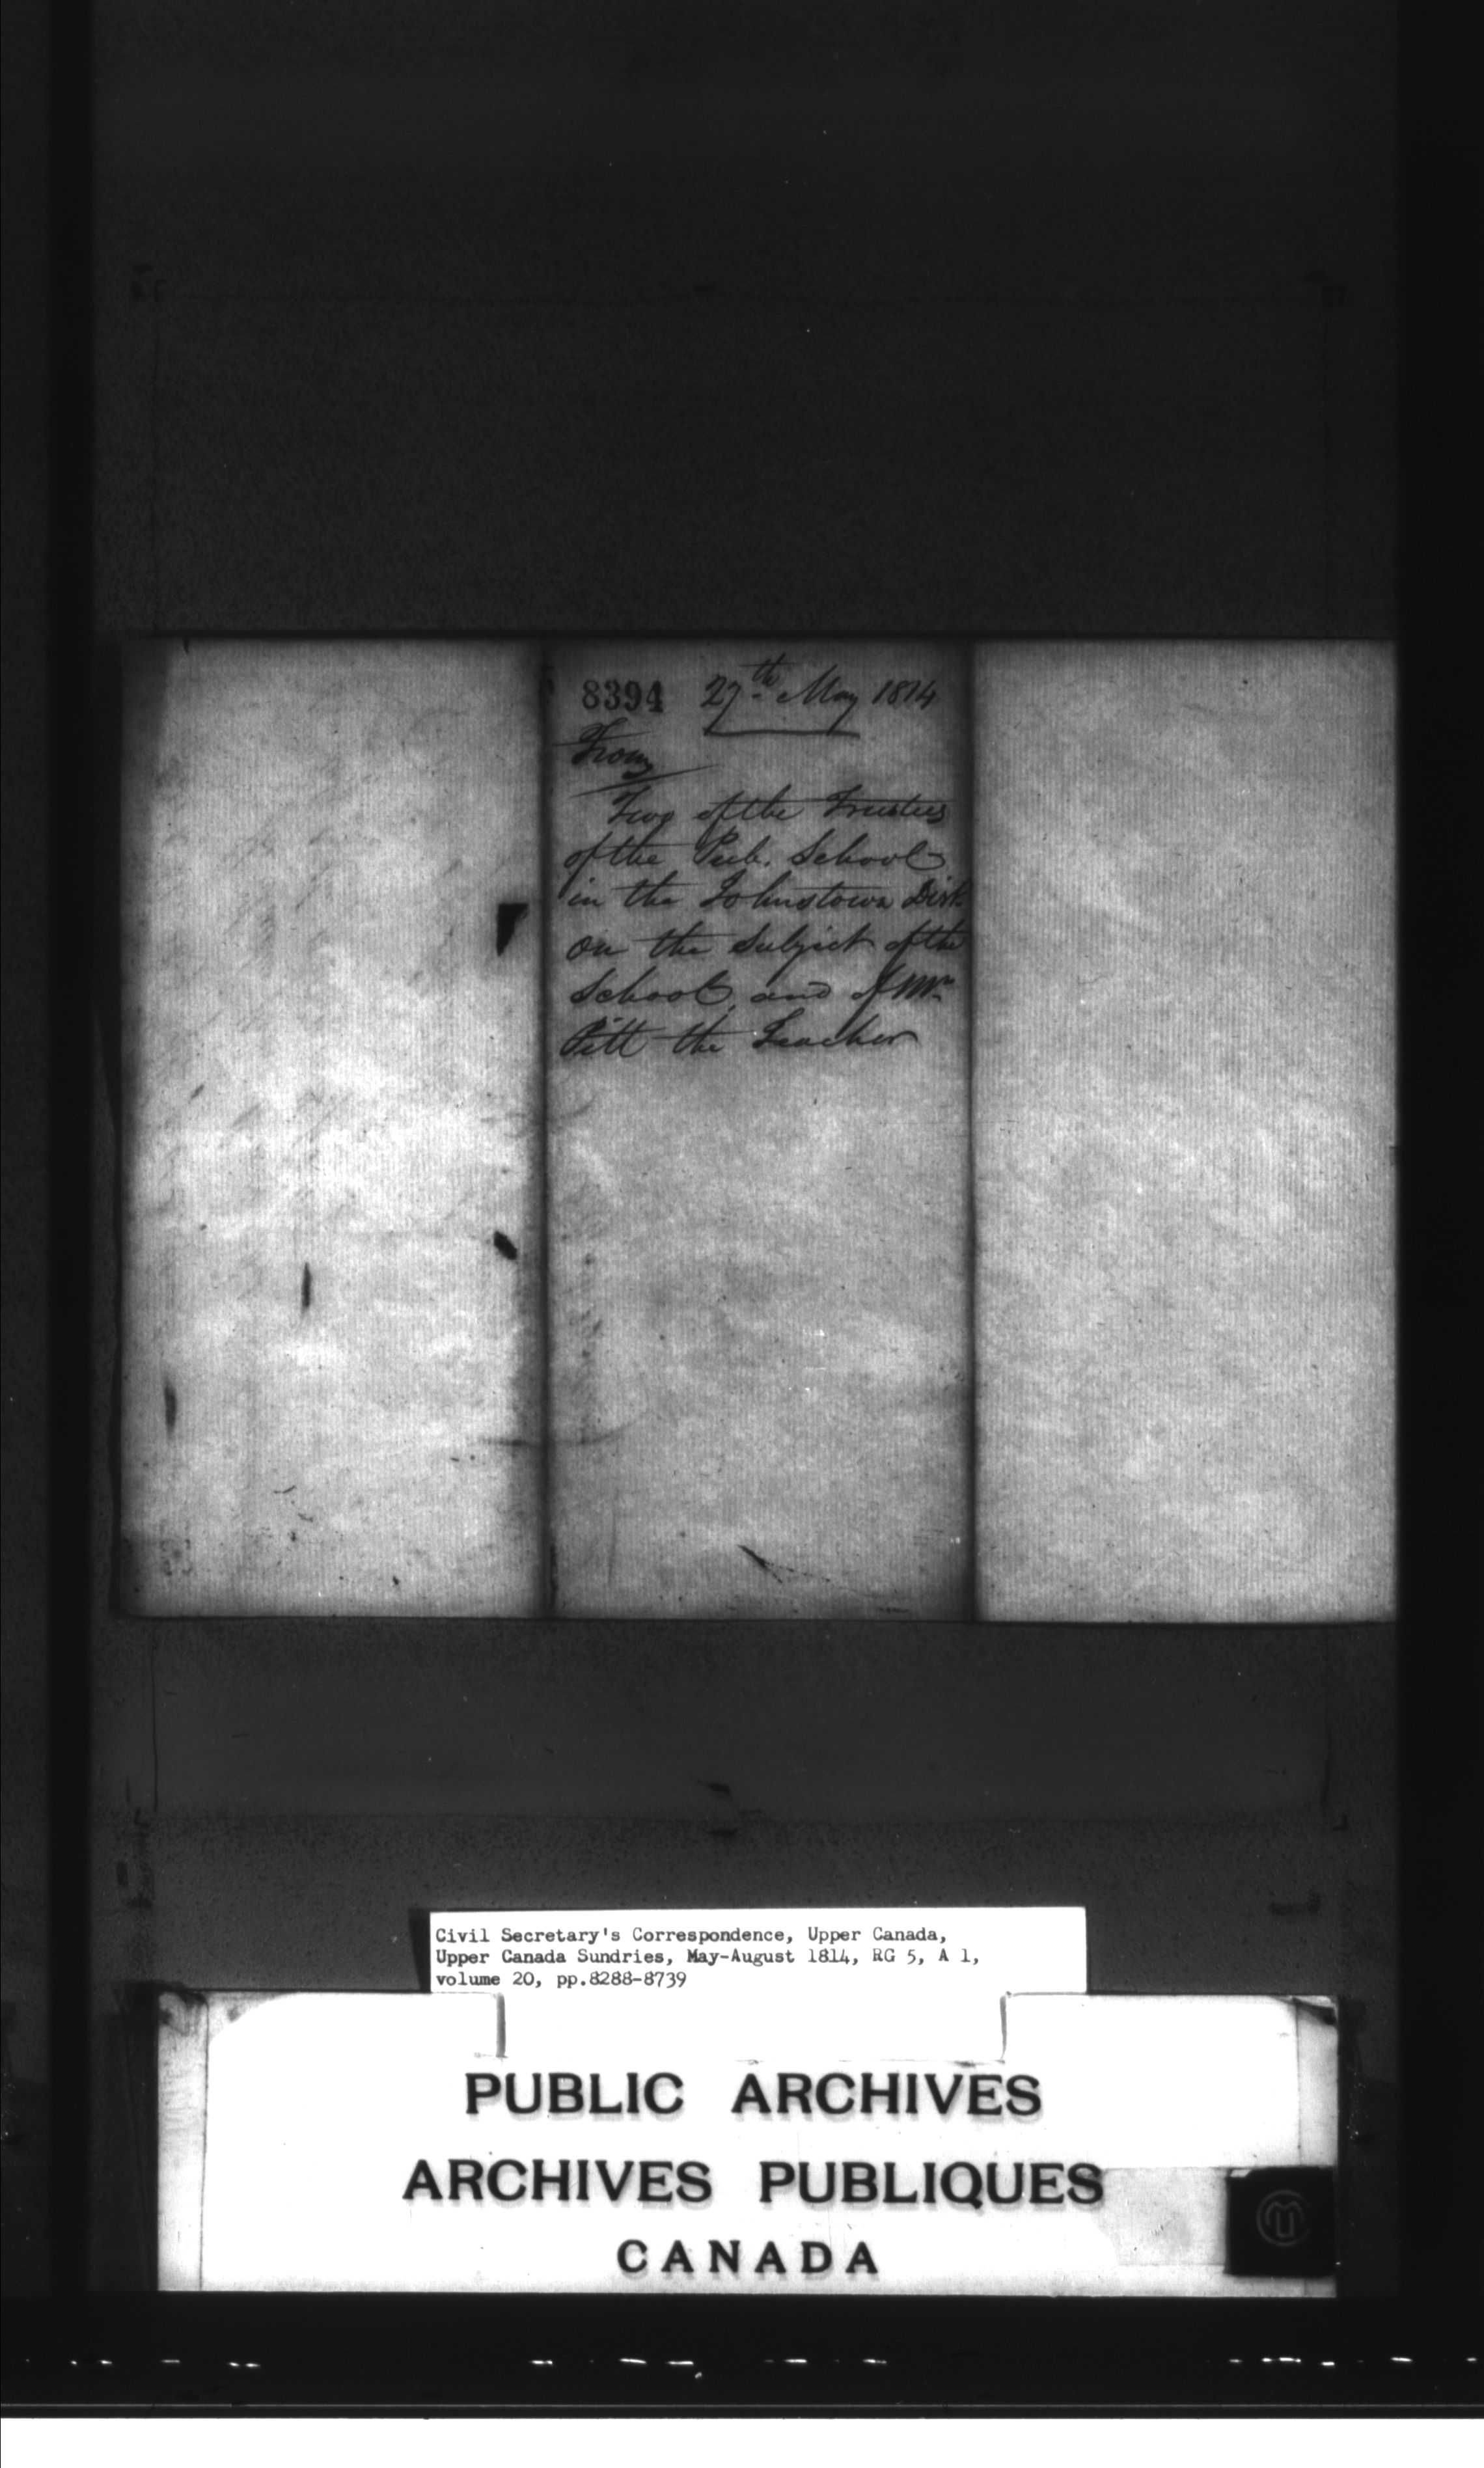 8394 27th May 1814
From
Two of the Trustees
of the Pub. School
in the Johnstown Dist.
on the Subject of the
School, and of Mr.
Pitt the Teacher
Civil Secretary's Correspondence, Upper Canada,
Upper Canada Sundries, May-August 1814, RG 5, A 1,
volume 20, pp.8288-8739
PUBLIC ARCHIVES
ARCHIVES PUBLIQUES
CANADA